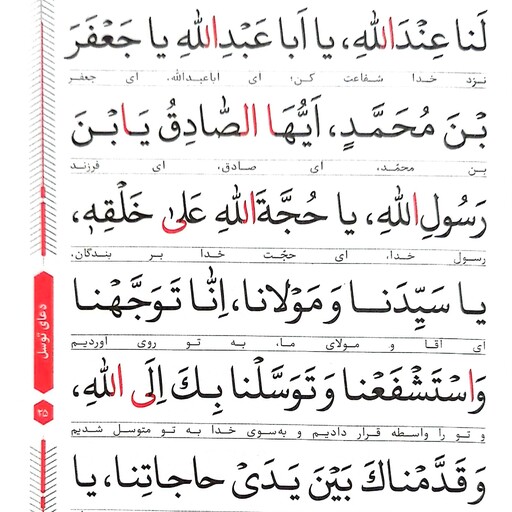 لَنا عِنْدَاللهِ، یا اَبا عَبْدِاللهِ یا جَعْفَرَ
نزد خدا شفاعت کن؛ ای اباعبدالله، ای جعفر
بْنَ مُحَمَّدٍ، اَیُّهَا الصّادِقُ یَابْنَ
بن محمّد، ای صادق، ای فرزند
رَسُولِ اللهِ، یا حُجَّةَاللهِ عَلیٰ خَلْقِهٖ،
رسول خدا، ای حجّت خدا بر بندگان،
یا سَیِّدَنا وَ مَوْلانا، اِنّا تَوَجَّهْنا
ای آقا و مولای ما، به تو روی آوردیم
وَاسْتَشْفَعْنا وَ تَوَسَّلْنا بِكَ اِلَی اللهِ،
و تو را واسطه قرار دادیم و به‌سوی خدا به تو متوسل شدیم
وَ قَدَّمْناكَ بَیْنَ یَدَیْ حاجاتِنا، یا
دعای توسل
۳۵